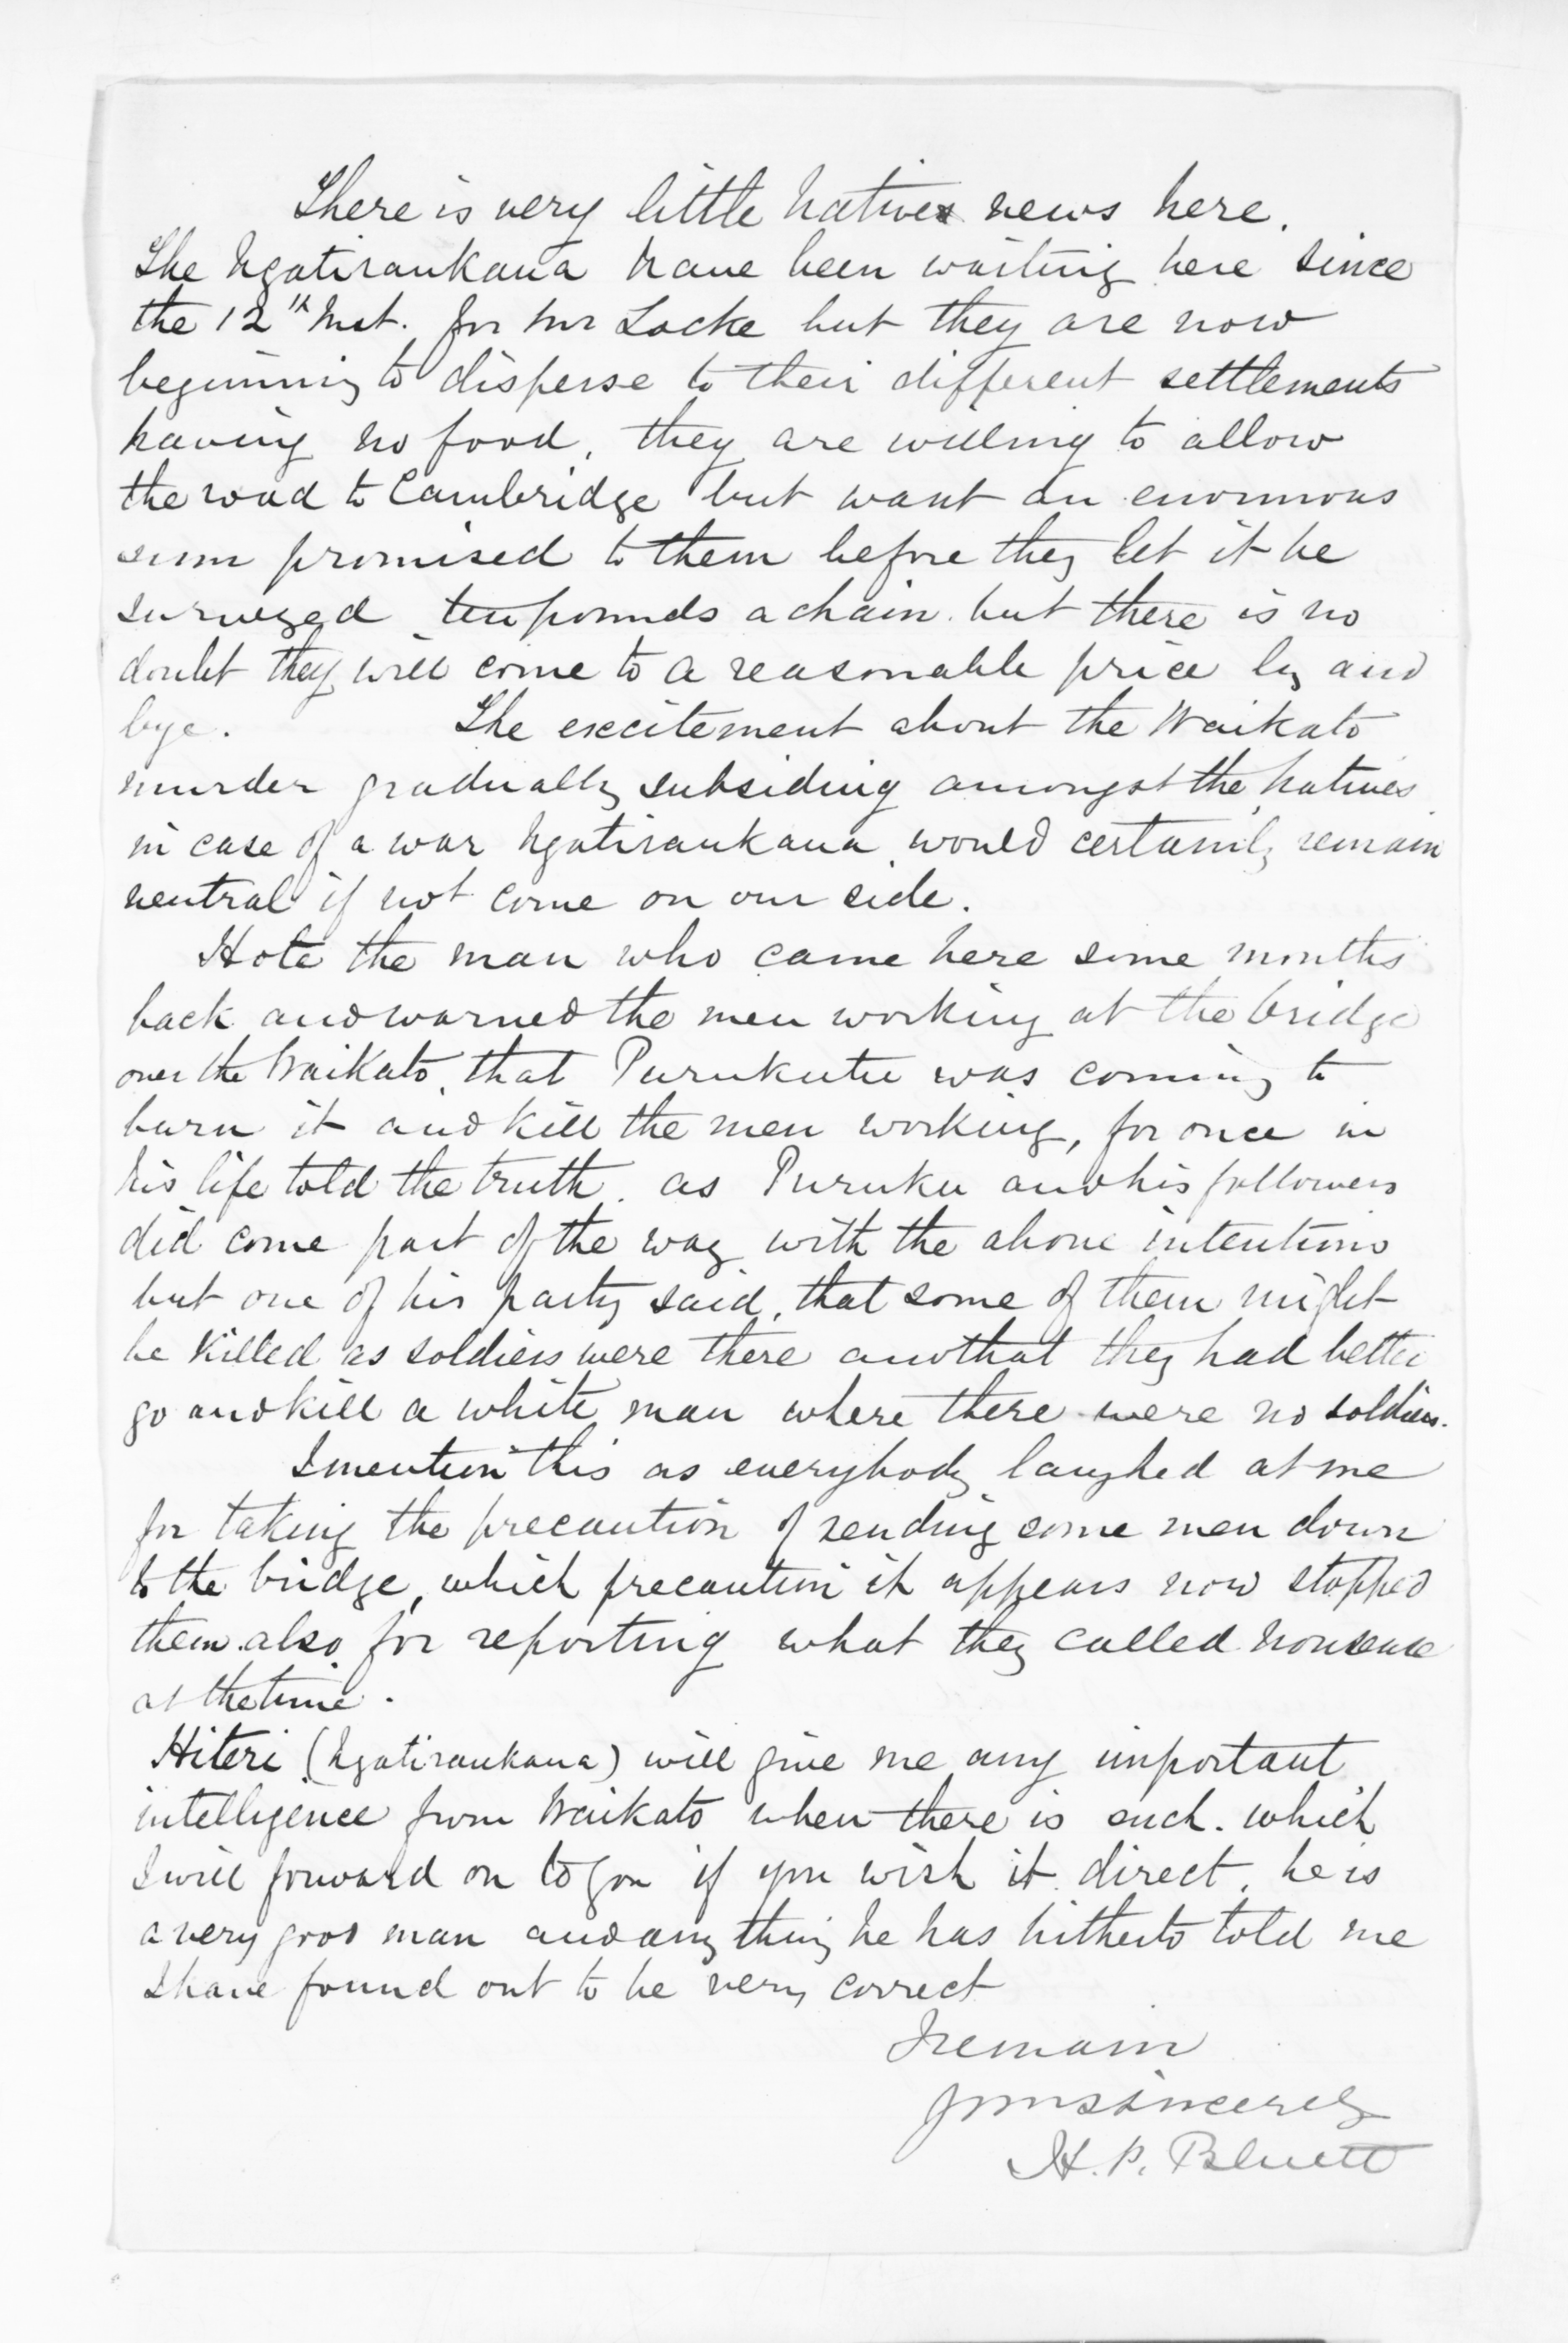 There is very little Native news here.
The Ngatiraukaua have been waiting here since
the 12th Inst. for Mr Locke but they are now
beginning to disperse to their different settlements
having no food, they are willing to allow
the road to Cambridge but want an enormous
sum promised to them before they let it be
surveyed ten pounds a chain. but there is no
doubt they will come to a reasonable price by and
bye. The excitement about the Waikato
murder gradually subsiding amongst the Natives
in case of a war Ngatiraukaua would certainly remain
neutral if not come on our side.
Hote the man who came here some months
back and warned the men working at the bridge
over the Waikato, that Purukutu was coming to
burn it and kill the men working, for once in
his life told the truth. as Puruku and his followers
did come part of the way with the above intentions
but one of his party said, that some of them might
be killed as soldiers were there and that they had better
go and kill a white man where there were no soldiers.
I mention this as everybody laughed at me
for taking the precaution of sending some men down
to the bridge, which precaution it appears now stopped
them. also for reporting what they called nonsense
at the time.
Hiteri (Ngatiraukaua) will give me any important
intelligence from Waikato when there is such. which
I will forward on to you if you wish it direct, he is
a very good man and any thing he has hitherto told me
I have found out to be very correct
I remain
Yours sincerely
H. P. Bluett